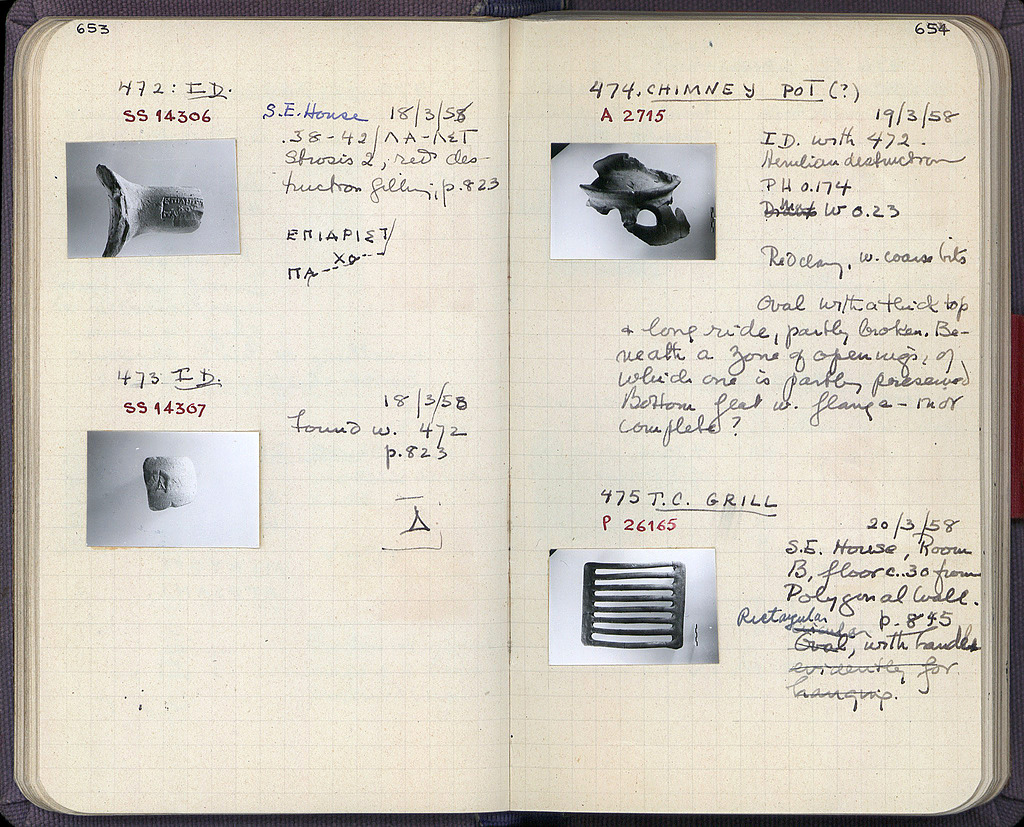 653
472: I.D.
SS 14306
S.E. House 18/3/58
.38-42/ΛΑ-ΛΣΤ
Strosis 2, red des-
truction filling, p. 823
ΕΠΙΑΡΙΣΤ/
ΧΟ
ΠΑ-----
473 I.D.
SS 14307
18/3/58
Found w. 472
p. 823
Δ
654
474. CHIMNEY POT (?)
A 2715
19/3/58
I.D. with 472.
Herulian destruction
PH 0.174
W 0.23
Red clay, w. coarse bits
Oval with a thick top
+ long side, partly broken. Be-
neath a zone of openings, of
which one is partly preserved
Bottom flat w. flange - nor
complete?
475 T.C. GRILL
P 26165
20/3/58
S.E. House, Room
B, floor c. .30 from
Polygonal Wall.
Rectangular p. 845
circular
Oval, with handle
evidently for
hanging.